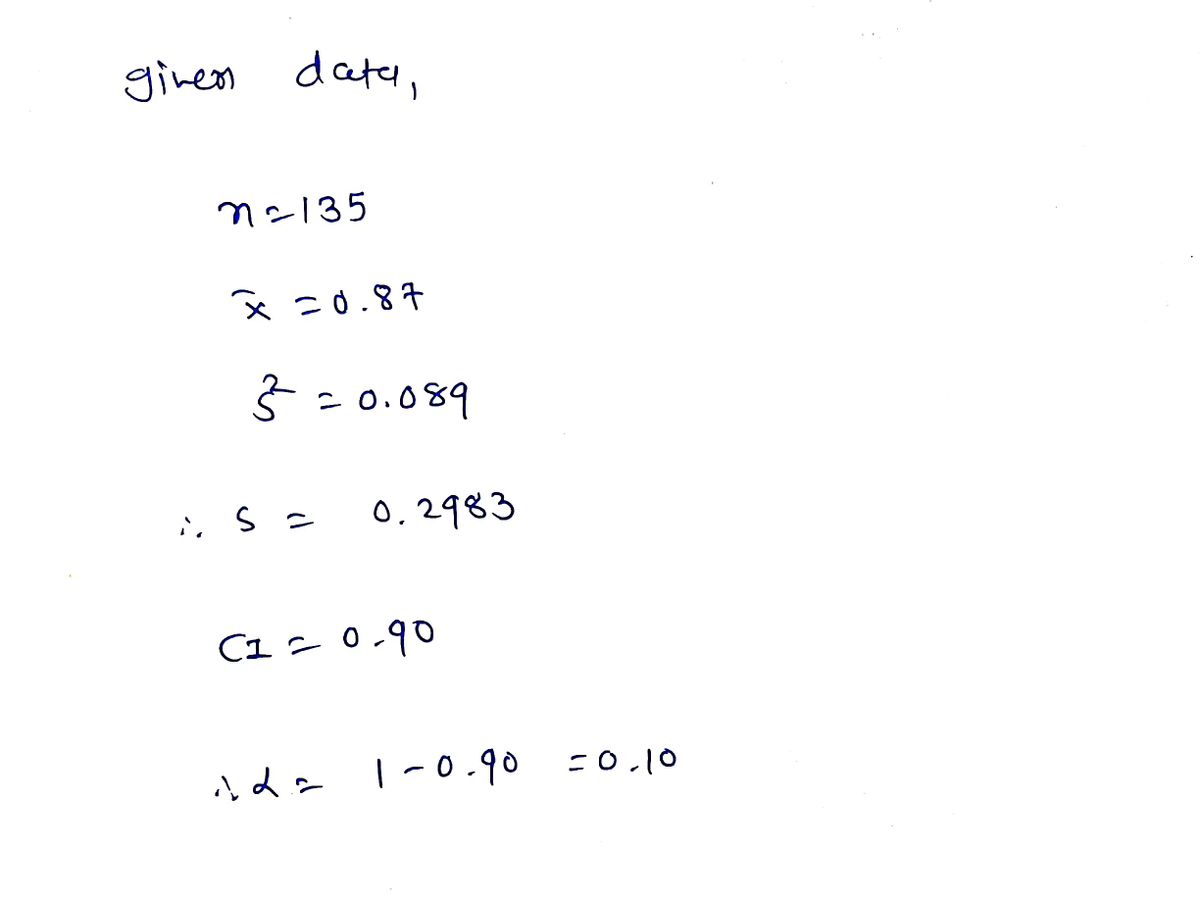 given data,
n=135
x̄ = 0.87
s² = 0.089
∴ S = 0.2983
CI = 0.90
∴ α = 1-0.90 = 0.10